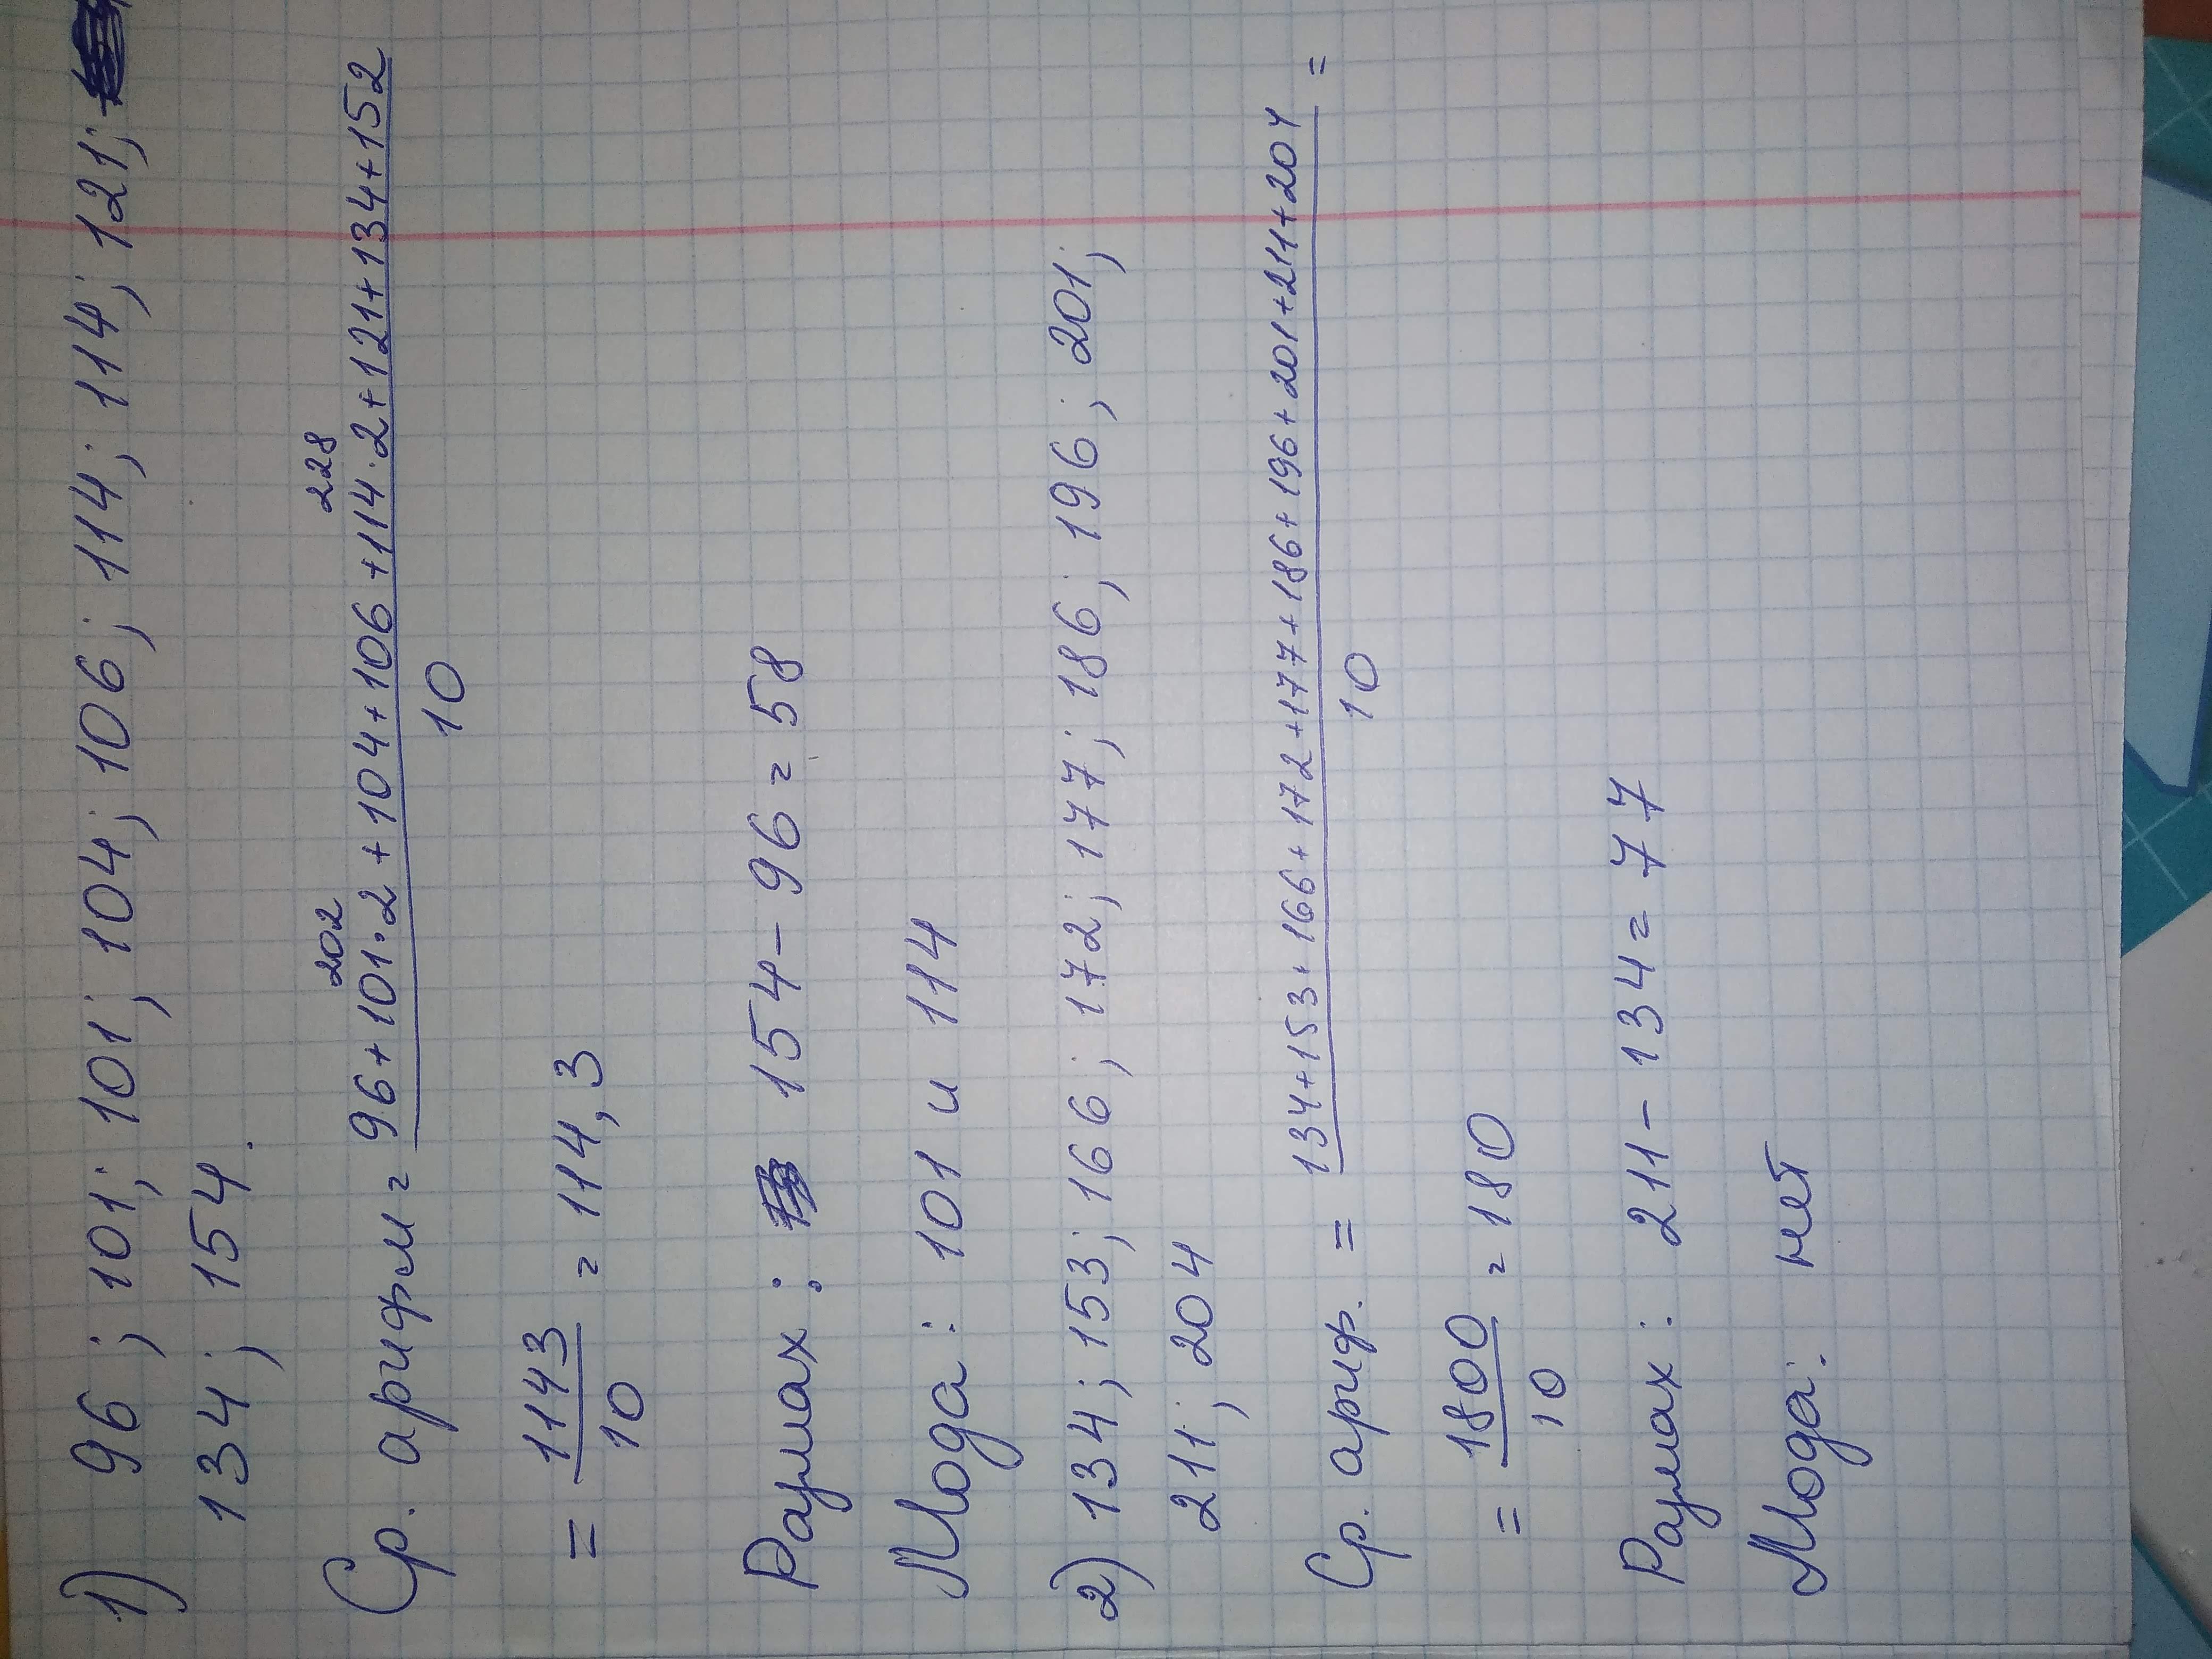 1) 96; 101; 101; 104; 106; 114; 114; 121;
134; 154.
202 228
Ср. арифм = 96+101·2+104+106+114·2+121+134+152
10
= 1143 = 114,3
10
Размах: 154-96=58
Мода: 101 и 114
2) 134; 153; 166; 172; 177; 186; 196; 201;
211; 204
Ср. ариф. = 134+153+166+172+177+186+196+201+211+204 =
10
= 1800 = 180
10
Размах: 211-134=77
Мода: нет